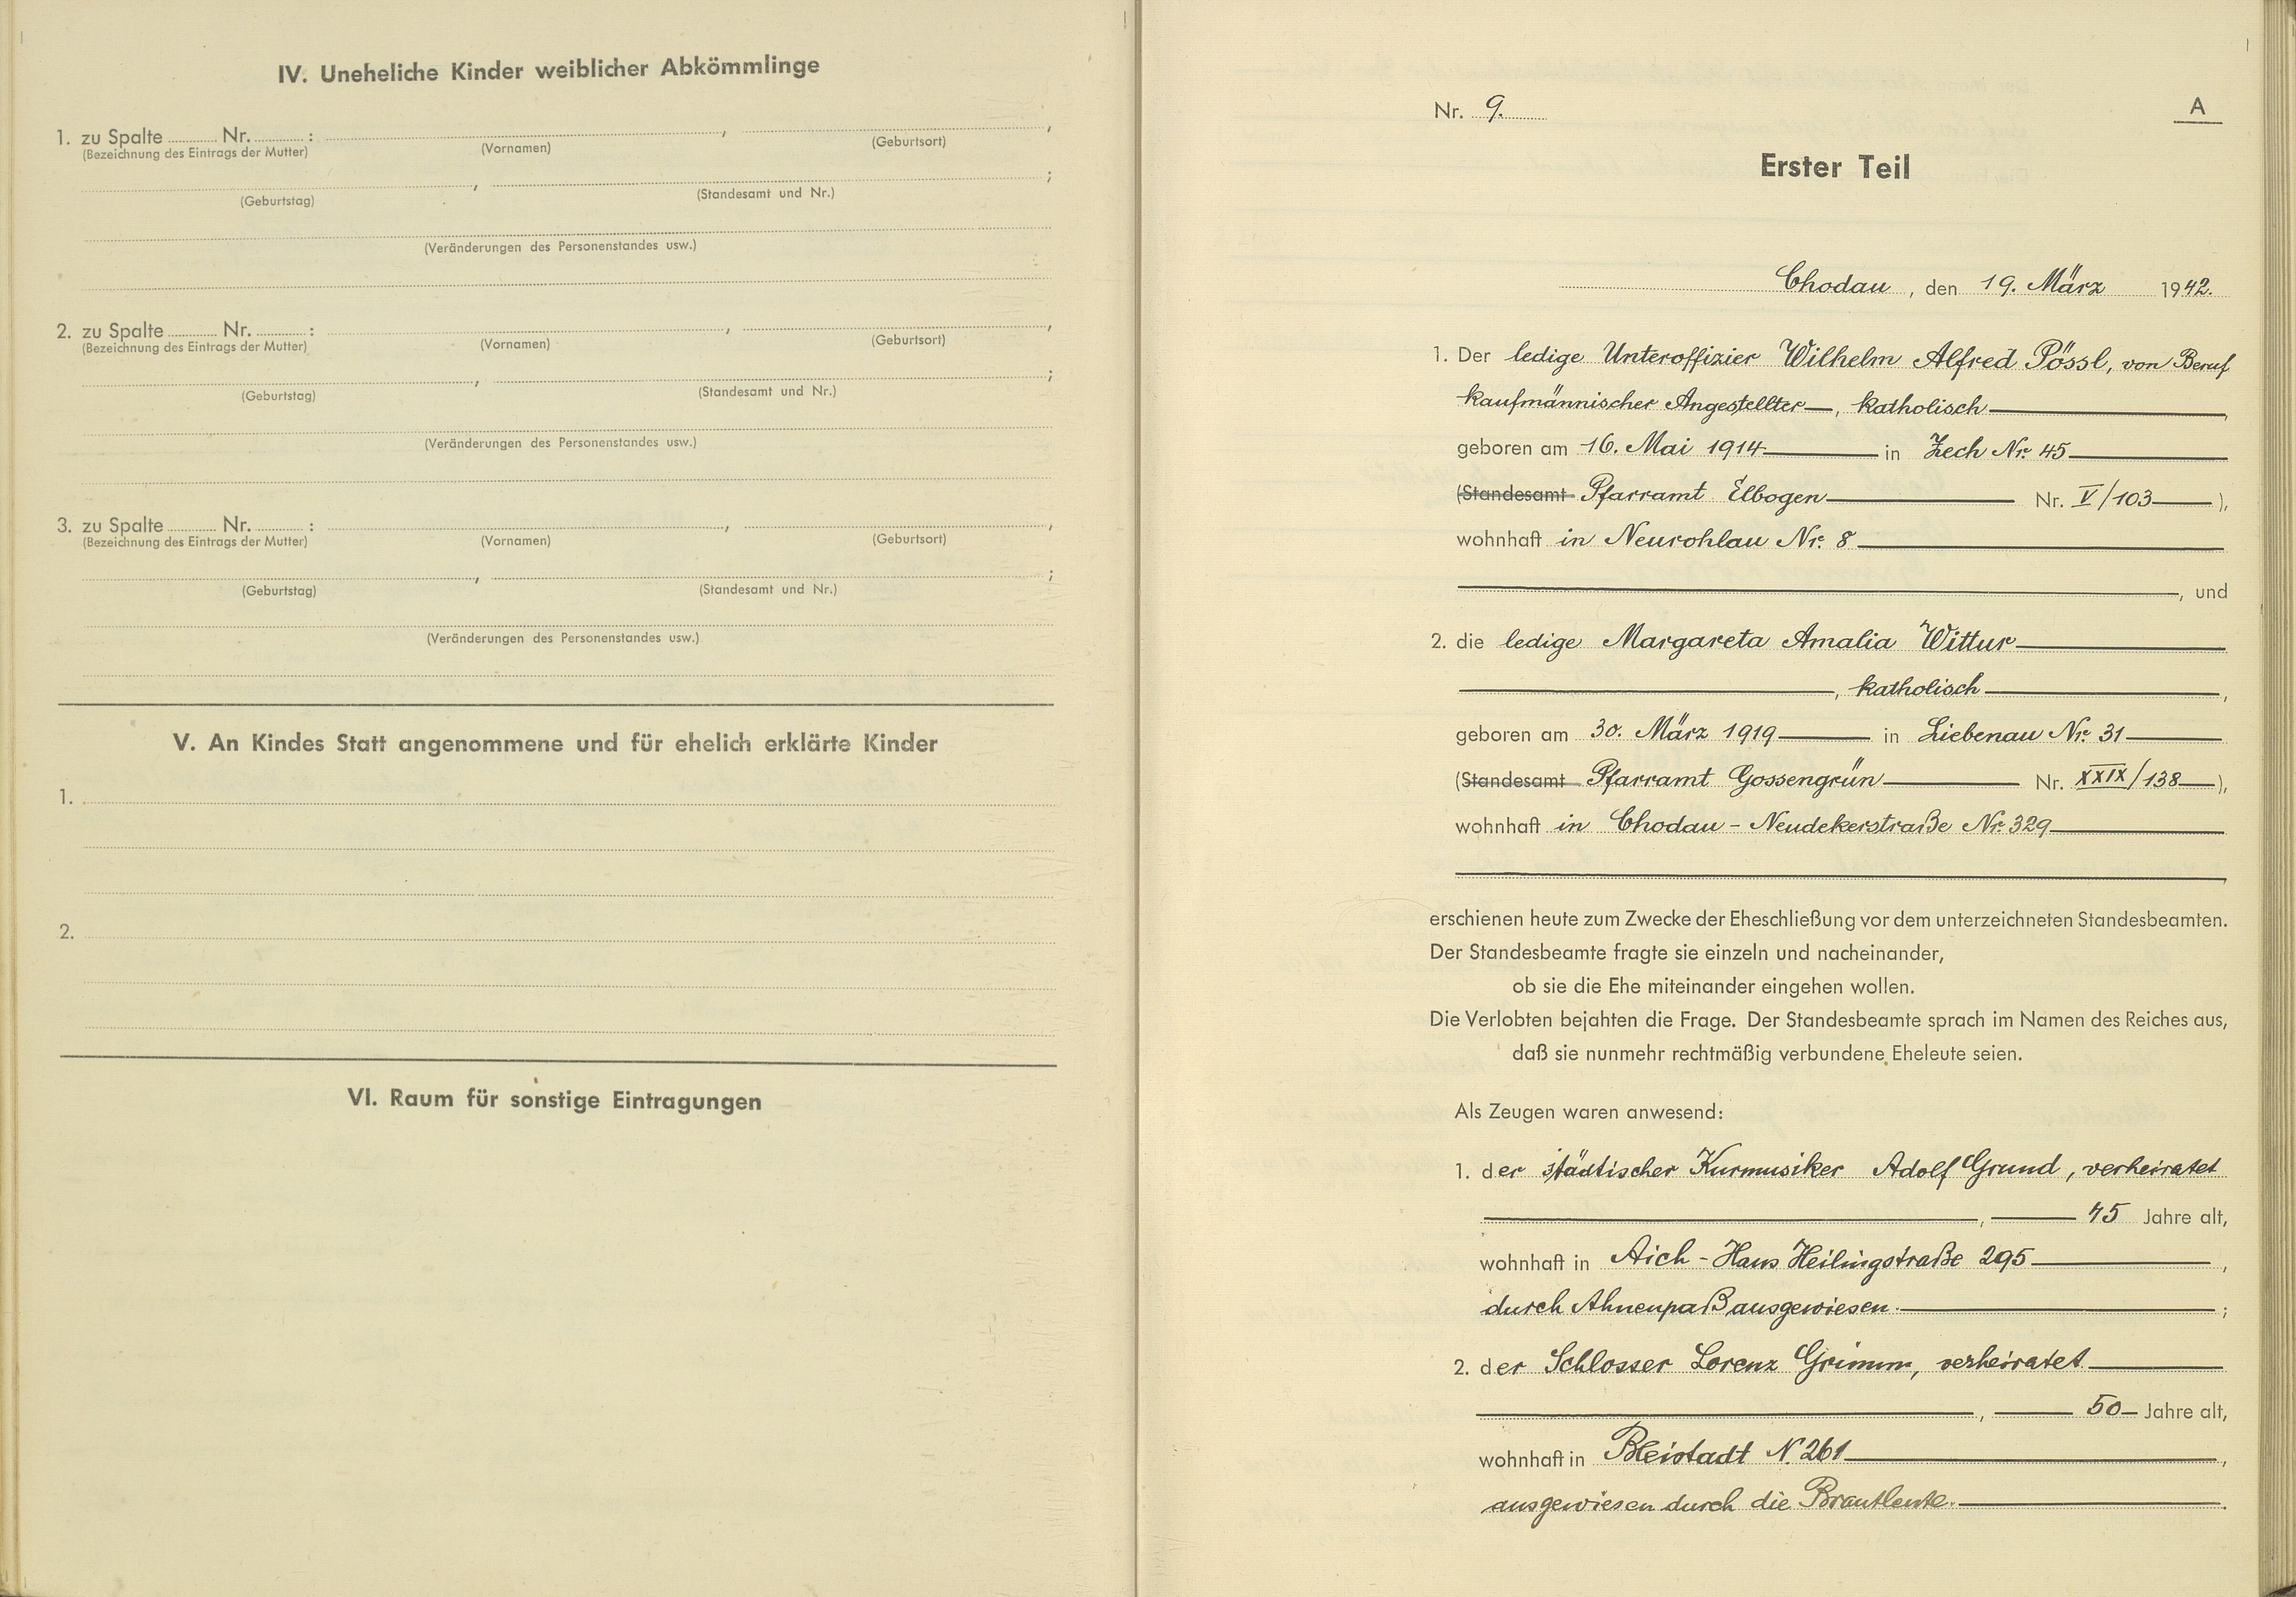 IV. Uneheliche Kinder weiblicher Abkömmlinge
1. zu Spalte Nr. : , ,
(Bezeichnung des Eintrags der Mutter) (Vornamen) (Geburtsort)
, ;
(Geburtstag) (Standesamt und Nr.)
(Veränderungen des Personenstandes usw.)
2. zu Spalte Nr. : , ,
(Bezeichnung des Eintrags der Mutter) (Vornamen) (Geburtsort)
, ;
(Geburtstag) (Standesamt und Nr.)
(Veränderungen des Personenstandes usw.)
3. zu Spalte Nr. : , ,
(Bezeichnung des Eintrags der Mutter) (Vornamen) (Geburtsort)
, ;
(Geburtstag) (Standesamt und Nr.)
(Veränderungen des Personenstandes usw.)
V. An Kindes Statt angenommene und für ehelich erklärte Kinder
1.
2.
VI. Raum für sonstige Eintragungen
Nr. 9. A
Erster Teil
Chodau, den 19. März 1942.
1. Der ledige Unteroffizier Wilhelm Alfred Pössl, von Beruf
kaufmännischer Angestellter, katholisch,
geboren am 16. Mai 1914 in Zech Nr. 45
(Standesamt Pfarramt Elbogen Nr. V/103),
wohnhaft in Neurohlau Nr. 8
, und
2. die ledige Margareta Amalia Wittur
, katholisch,
geboren am 30. März 1919 in Liebenau Nr. 31
(Standesamt Pfarramt Gossengrün Nr. XXIX/138),
wohnhaft in Chodau - Neudekerstraße Nr. 329
erschienen heute zum Zwecke der Eheschließung vor dem unterzeichneten Standesbeamten.
Der Standesbeamte fragte sie einzeln und nacheinander,
ob sie die Ehe miteinander eingehen wollen.
Die Verlobten bejahten die Frage. Der Standesbeamte sprach im Namen des Reiches aus,
daß sie nunmehr rechtmäßig verbundene Eheleute seien.
Als Zeugen waren anwesend:
1. der städtischer Kurmusiker Adolf Grund, verheiratet
, 45 Jahre alt,
wohnhaft in Aich - Hans Heilingstraße 295,
durch Ahnenpaß ausgewiesen. ;
2. der Schlosser Lorenz Grimm, verheiratet
, 50 Jahre alt,
wohnhaft in Bleistadt N. 261,
ausgewiesen durch die Brautleute.